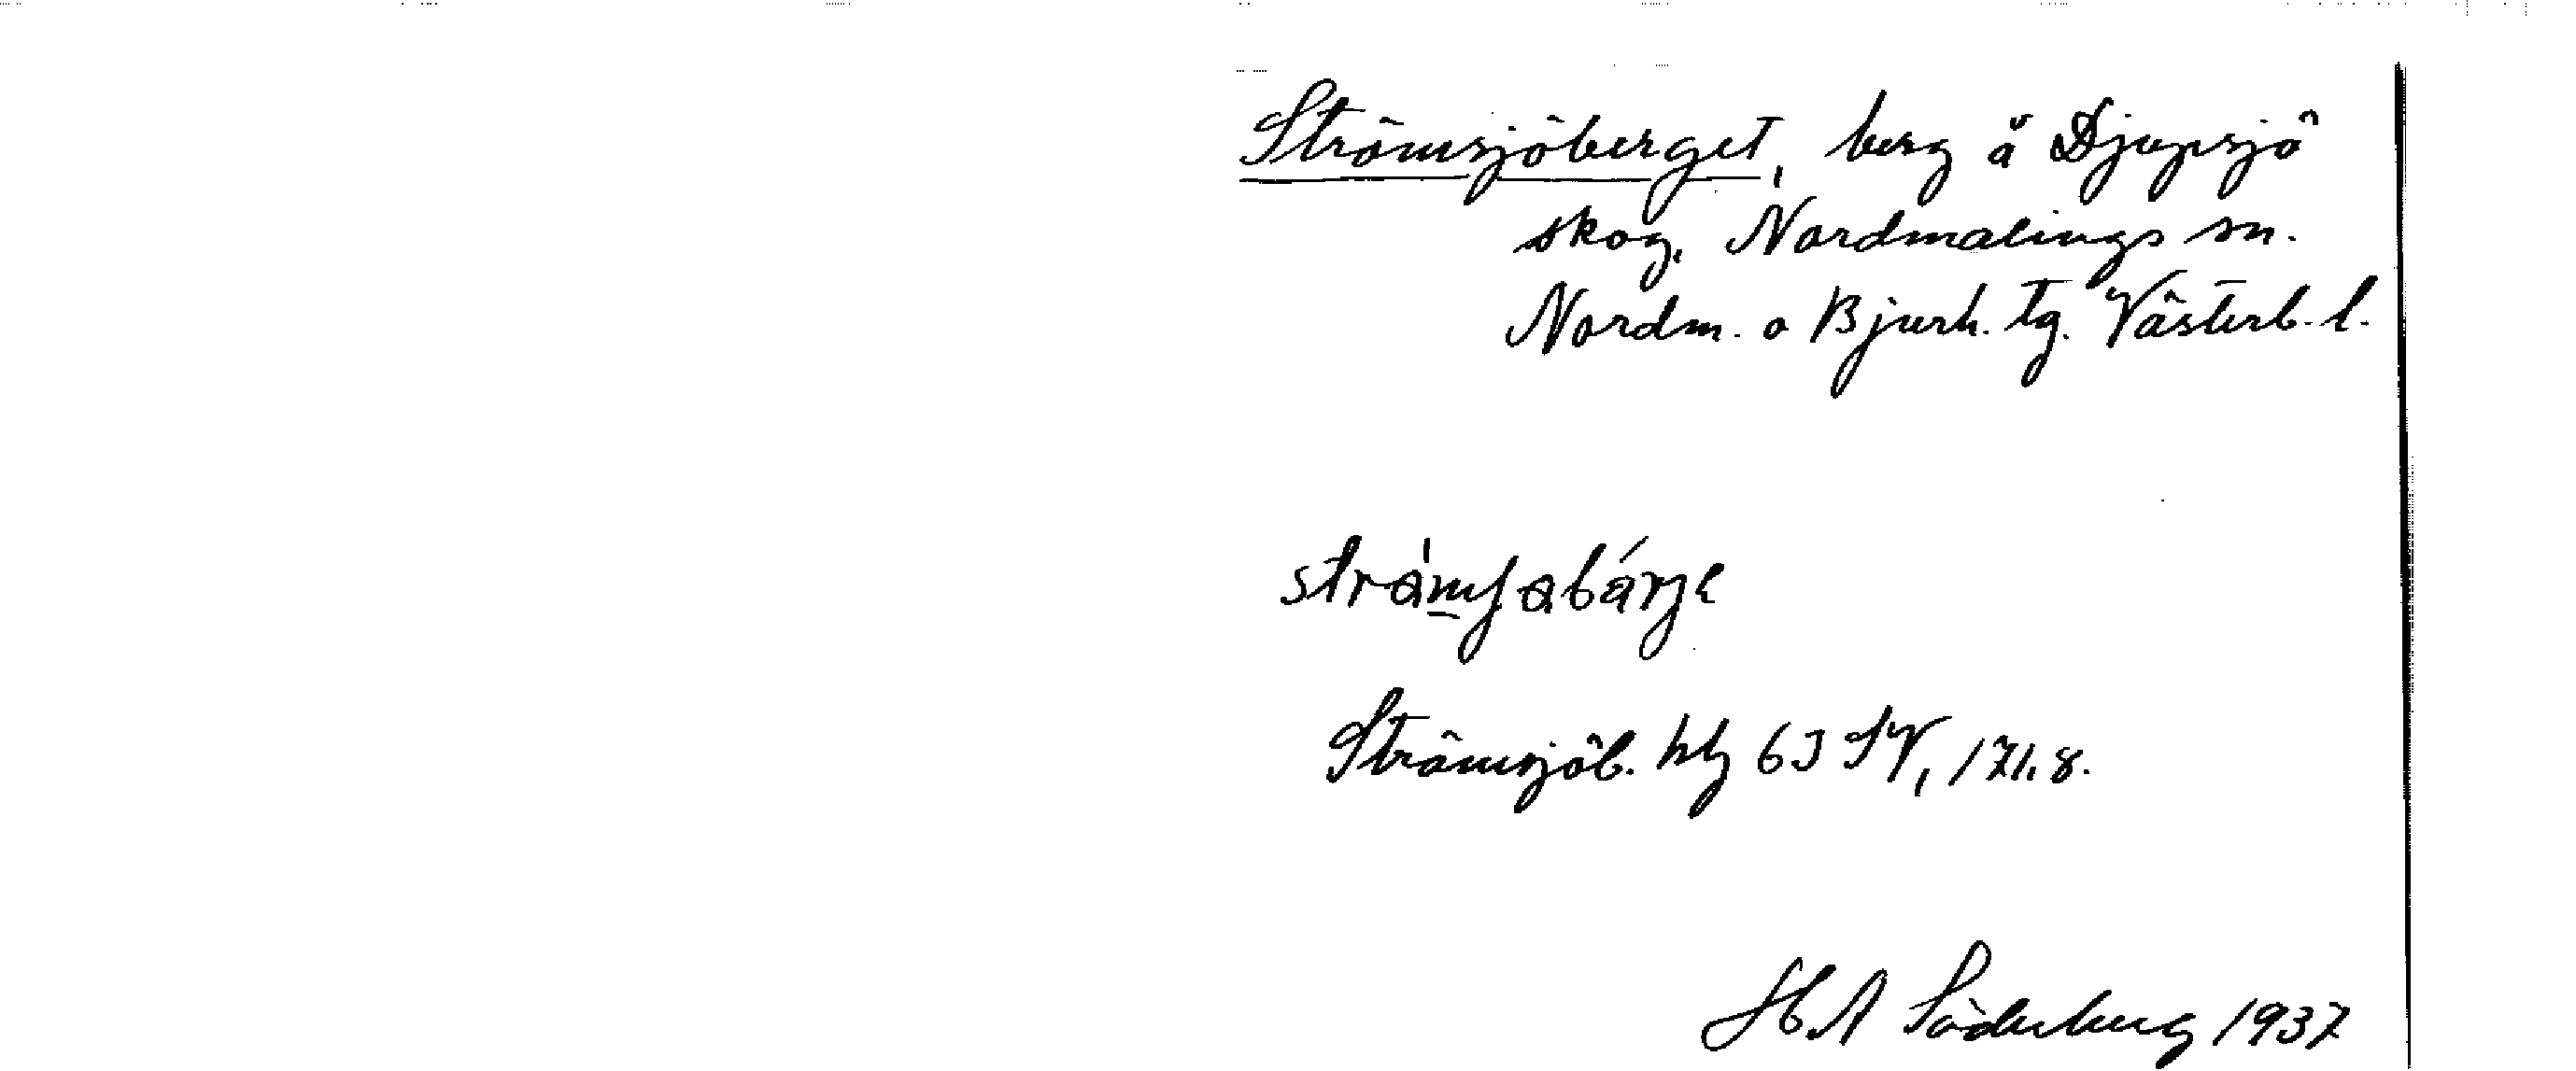 Strömsjöberget, berg å Djupsjö
skog, Nordmalings sn.
Nordm. o Bjurh. tg. Västerb. l.
Strömsjöb. hbg 63 SV, 171.8.
H A Söderberg 1937